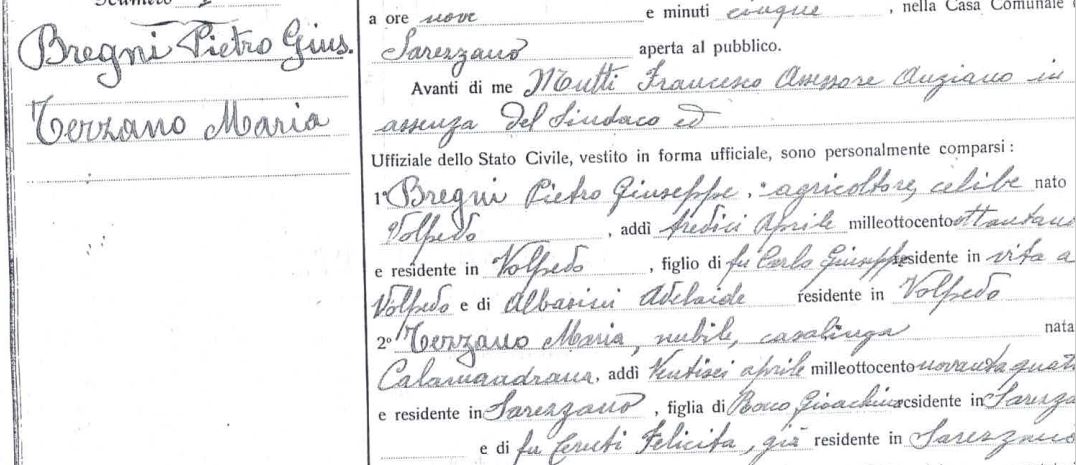 Bregni Pietro Gius.
Terzano Maria
a ore nove e minuti cinque, nella Casa Comunale
Sarezzano aperta al pubblico.
Avanti di me Mutti Francesco Assessore Anziano in
assenza del Sindaco ed
Uffiziale dello Stato Civile, vestito in forma ufficiale, sono personalmente comparsi :
1° Bregni Pietro Giuseppe, agricoltore, celibe nato
Volpedo, addì tredici Aprile milleottocento
e residente in Volpedo, figlio di fu Carlo Giuseppe residente in vita a
Volpedo e di Albasini Adelaide residente in Volpedo
2° Terzano Maria, nubile, casalinga nata
Calamandrana, addì Ventisei aprile milleottocentonovantaquat
e residente in Sarezzano, figlia di Bocco Gioachino residente in Sarezza
e di fu Ceruti Felicita, già residente in Sarezzano